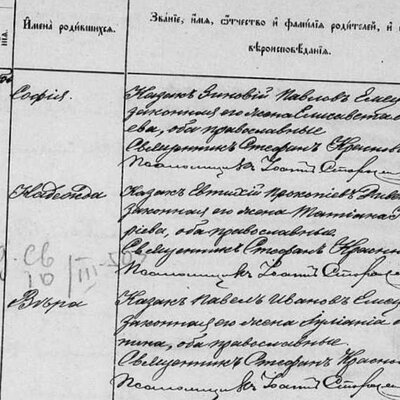 Имена родившихся.
Званіе, имя, отчество и фамилія родителей, и
вѣроисповѣданія.
нія.
Софія.
Казакъ Зиновій Павловъ
законная его жена Елисавета
ева, оба православные
Священникъ Стефанъ Красно
Псаломщикъ Іоаннъ
Надежда
Казакъ Евтихій Прокопіевъ
законная его жена Татіана
ріева, оба православные.
Священникъ Стефанъ Красно
Псаломщикъ Іоаннъ
СВ
10 / III
Вѣра
Казакъ Павелъ Ивановъ
законная его жена
тина, оба православные.
Священникъ Стефанъ Красно
Псаломщикъ Іоаннъ